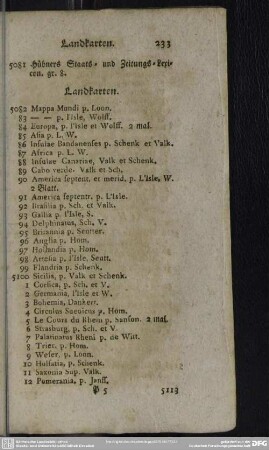 Landkarten. 233
5081 Hübners Staats- und Zeitungs-Lexi-
con. gr. 8.
Landkarten.
5082 Mappa Mundi p. Lonn.
83 — — p. l'Isle, Wolff.
84 Europa, p. l'Isle et Wolff. 2 mal.
85 Asia p. L. W.
86 Insulae Bandanenses p. Schenk et Valk.
87 Africa p. L. W.
88 Insulae Canariae, Valk et Schenk.
89 Cabo verde. Valk et Sch.
90 America septentr. et merid. p. L'Isle. W.
2 Blatt.
91 America septentr. p. L'Isle.
92 Brasilia p. Sch. et Valk.
93 Gallia p. l'Isle, S.
94 Delphinatus, Sch, V.
95 Britannia p. Seutter.
96 Anglia p. Hom.
97 Hollandia p. Hom.
98 Artesia p. l'Isle, Seutt.
99 Flandria p. Schenk.
5100 Sicilia, p. Valk et Schenk.
1 Corsica, p. Sch. et V.
2 Germania, l'Isle et W.
3 Bohemia, Dankert.
4 Circulus Saeuicus p. Hom.
5 Le Cours du Rhein p. Sanson. 2 mal.
6 Strasburg, p. Sch. et V.
7 Palatinatus Rheni p. de Witt.
8 Trier, p. Hom.
9 Weser, p. Lonn.
10 Holsatia, p. Schenk.
11 Saxonia Sup. Valk.
12 Pomerania, p. Janss.
P 5 5113